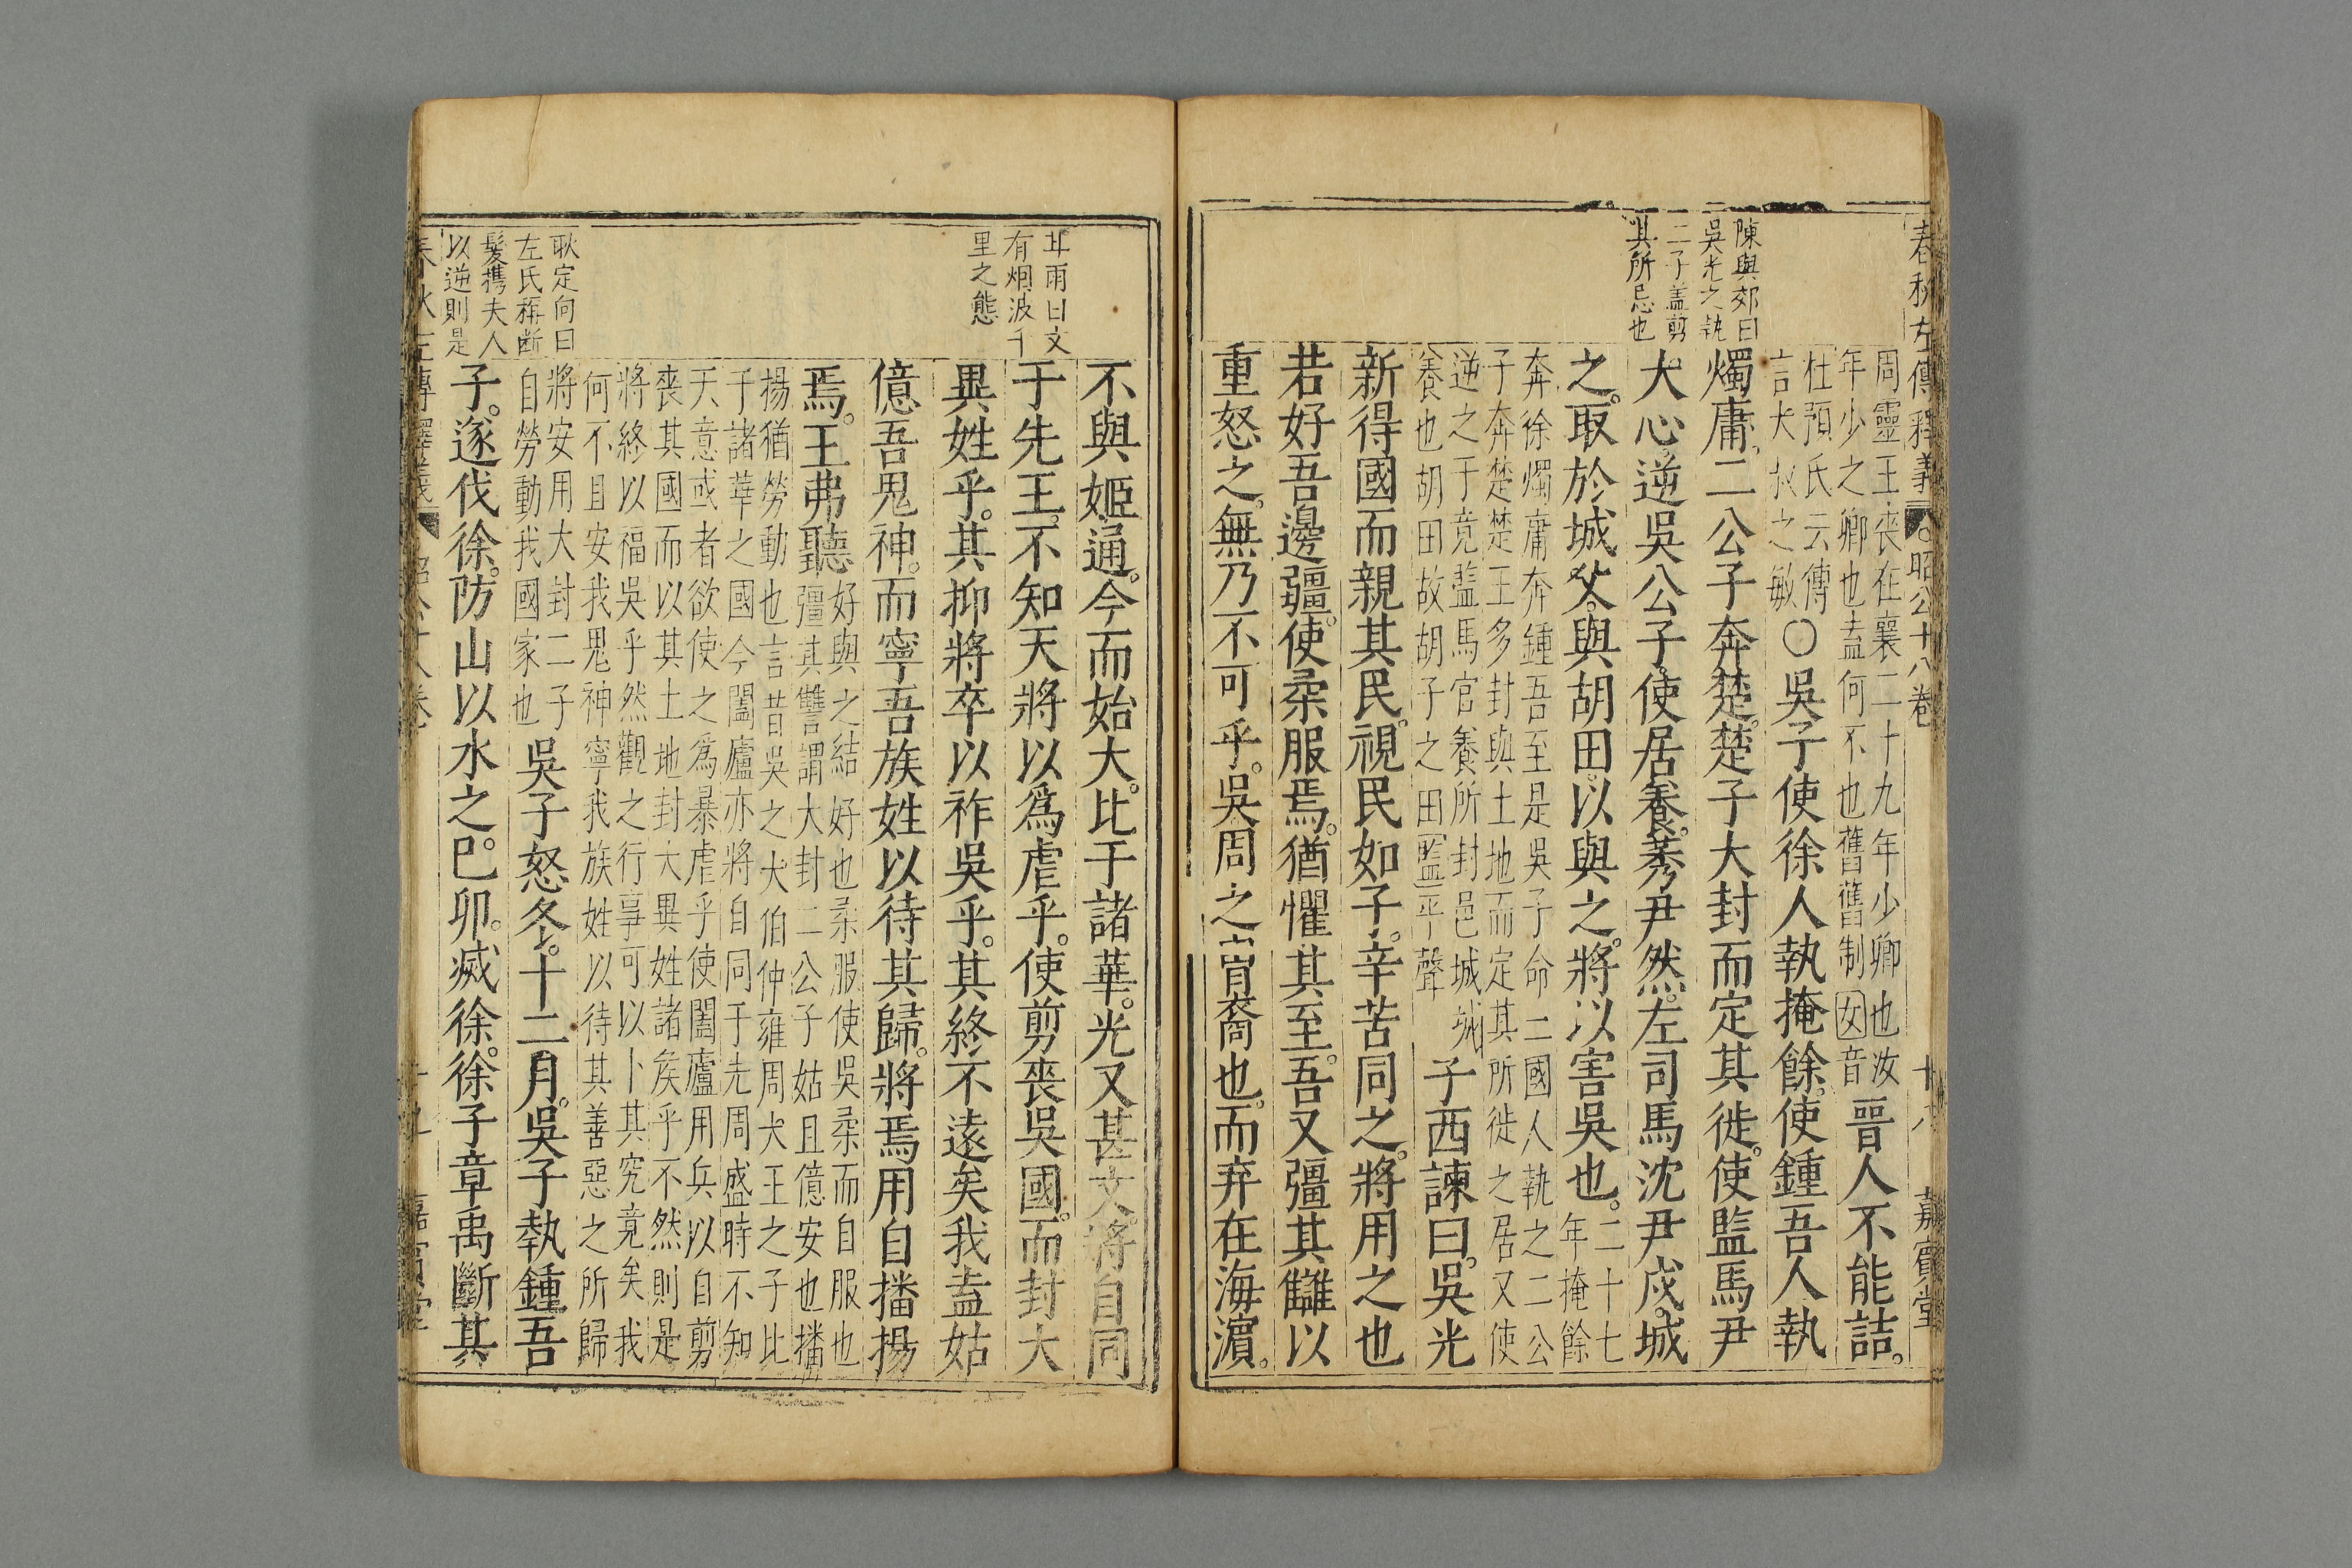 春秋左傳釋義
昭公十八卷
嘉賓堂
陳與郊曰
吳光之執
二子盖剪
其所忌也
周靈王喪在襄二十九年少卿也汝
年少之卿也盍何不也舊舊制女音
晉人不能詰。
杜預氏云傳
言大叔之敏
〇吳子使徐人執掩餘。使鍾吾人執
燭庸。二公子奔楚。楚子大封而定其徙。使監馬尹
大心逆吳公子。使居養。莠尹然。左司馬沈尹戌。城
之。取於城父。與胡田。以與之。將以害吳也。
二十七
年掩餘
奔徐燭庸奔鍾吾至是吳子命二國人執之二公
子奔楚楚王多封與土地而定其所徙之居又使
逆之于竟監馬官養所封邑城城
養也胡田故胡子之田監平聲
子西諫曰。吳光
新得國而親其民。視民如子。辛苦同之。將用之也
若好吾邊疆。使柔服焉。猶懼其至。吾又彊其讎以
重怒之。無乃不可乎。吳周之胄裔也。而弃在海濵。
廿雨曰文
有烟波千
里之態
不與姬通。今而始大。比于諸華。光又甚文。將自同
于先王。不知天將以爲虐乎。使剪喪吳國。而封大
異姓乎。其抑將卒以祚吳乎。其終不遠矣我盍姑
億吾鬼神。而寧吾族姓以待其歸。將焉用自播揚
焉。王弗聽
好與之結好也柔服使吳柔而自服也
彊其讐謂大封二公子姑且億安也播
揚猶勞動也言昔吳之大伯仲雍周大王之子比
于諸華之國今闔廬亦將自同于先周盛時不知
天意或者欲使之爲暴虐乎使闔廬用兵以自剪
喪其國而以其土地封大異姓諸矦乎不然則是
將終以福吳乎然觀之行事可以卜其究竟矣我
何不且安我鬼神寧我族姓以待其善惡之所歸
將安用大封二子
自勞動我國家也
吳子怒。冬。十二月。吳子執鍾吾
耿定向曰
左氏稱斷
髮携夫人
以逆則是
子。遂伐徐。防山以水之。已卯。滅徐。徐子章禹斷其